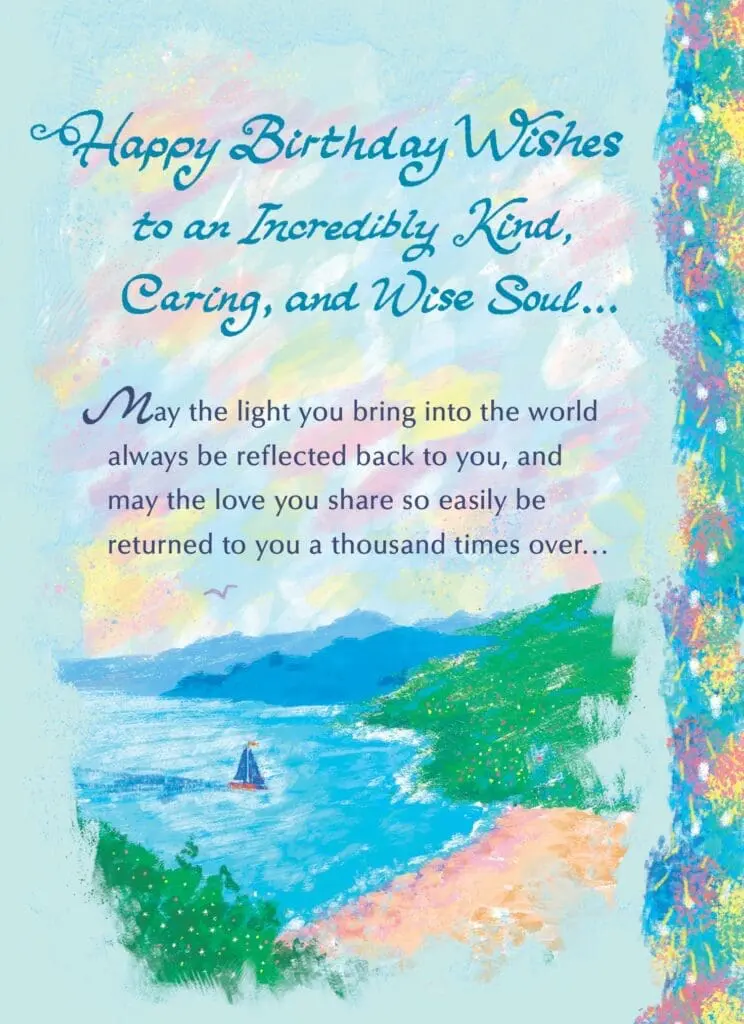 Happy Birthday Wishes
to an Incredibly Kind,
Caring, and Wise Soul...
May the light you bring into the world
always be reflected back to you, and
may the love you share so easily be
returned to you a thousand times over...